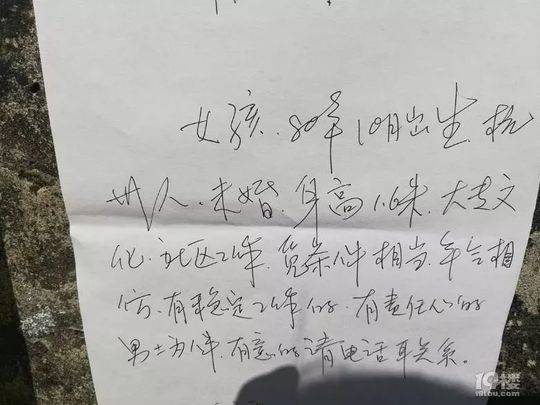 女孩. 80年10月出生. 杭
州人. 未婚. 身高1.6米. 大专文
化. 社区工作. 觅条件相当. 年令相
仿. 有稳定工作的. 有责任心的
男士为伴. 有意的请电话联系。
19楼
19lou.com